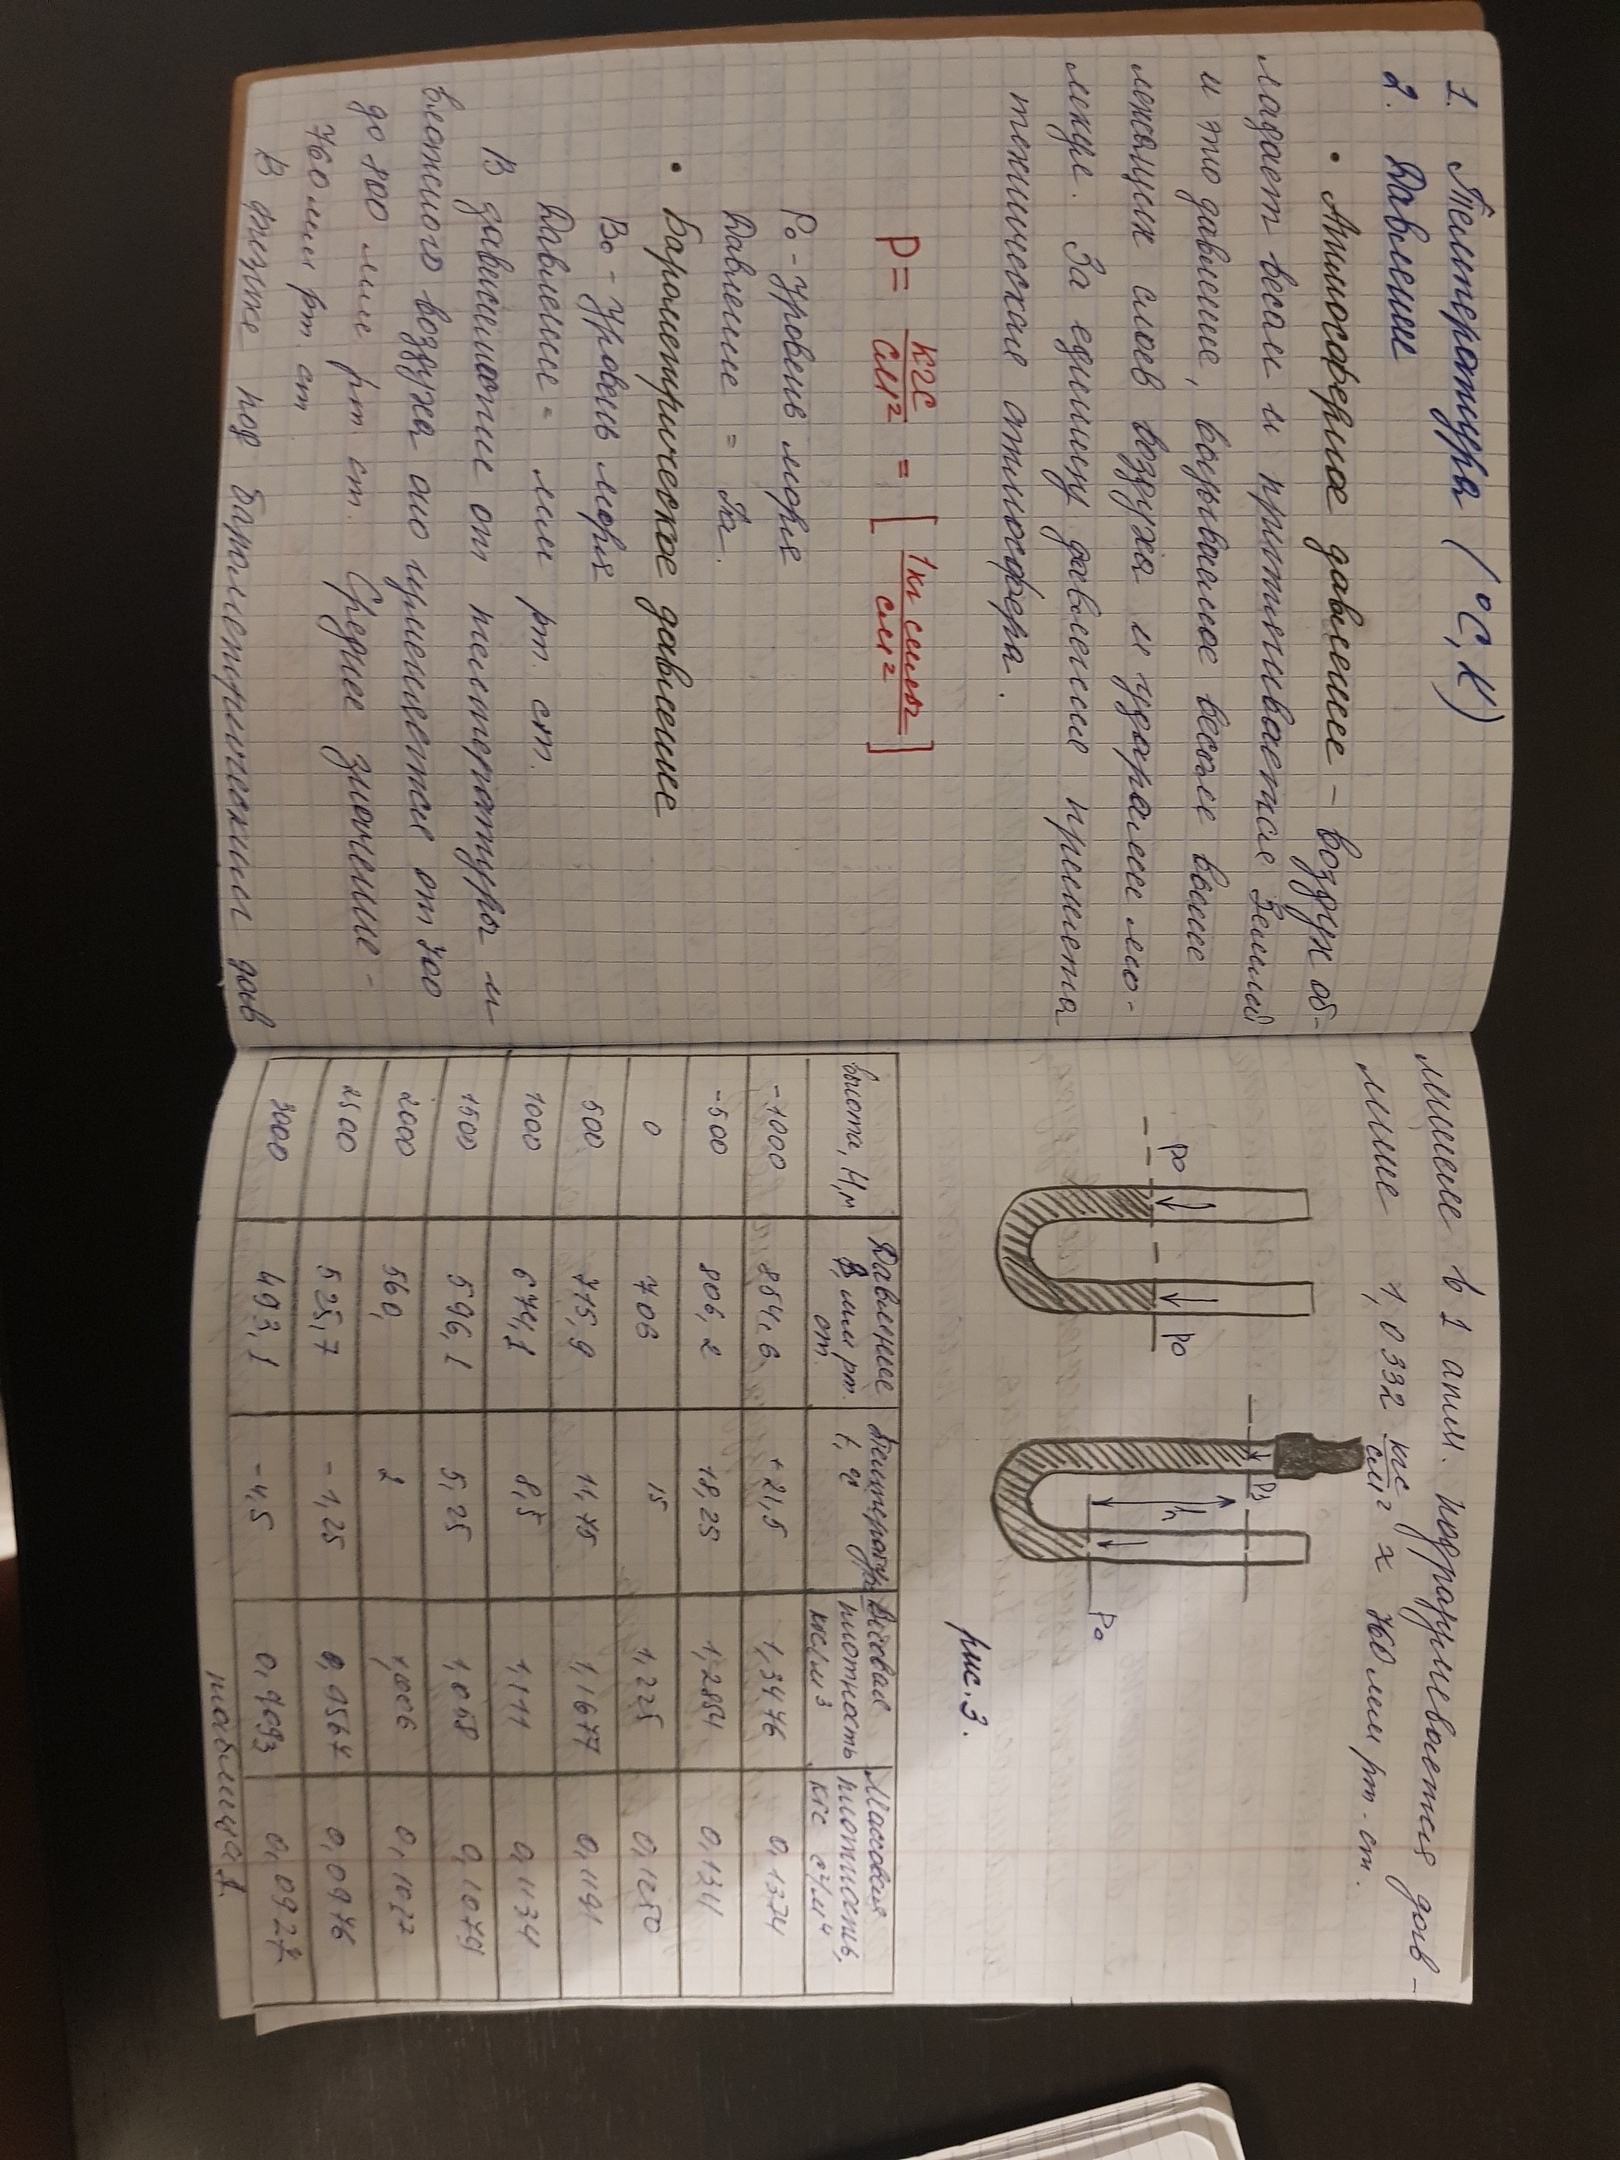 1. Температура (°C, K)
2. Давление
• Атмосферное давление – воздух об-
ладает весом и притягивается Землей
и это давление, вызываемое весом выше
лежащих слоев воздуха и ударами мо-
лекул. За единицу давления принята
техническая атмосфера.
P = кгс/см² = [1кг силы/см²]
P₀ - уровень моря
Давление = Па.
• Барометрическое давление
B₀ - уровень моря
Давление = мм рт. ст.
В зависимости от температуры и
влажного воздуха оно изменяется от 700
до 800 мм рт. ст. Среднее значение -
760 мм рт. ст
В физике под барометрическим дав
лением в 1 атм. подразумевается дав-
ление 1,0332 кгс/см² ≈ 760 мм рт. ст.
P₀ P₀ P₁ h P₀
рис. 3.
высота, H, м | Давление B, мм рт. ст. | Температура t, °C | Весовая плотность кгс/м³ | Массовая плотность, кгс с²/м⁴
-1000 | 854,6 | +21,5 | 1,3476 | 0,1374
-500 | 806,2 | 18,25 | 1,2854 | 0,134
0 | 706 | 15 | 1,225 | 0,1250
500 | 715,9 | 11,75 | 1,1677 | 0,1191
1000 | 674,1 | 8,5 | 1,111 | 0,1134
1500 | 596,1 | 5,25 | 1,058 | 0,1079
2000 | 560, | 2 | 1,006 | 0,1027
2500 | 525,7 | -1,25 | 0,9567 | 0,0976
3000 | 493,1 | -4,5 | 0,9093 | 0,0927
таблица 1.